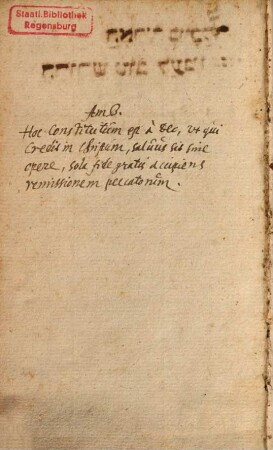 Staatl. Bibliothek
Regensburg
Amb.
Hoc Constitutum est à Deo, ut qui
Credit in Christum, salvus sit sine
opere, sola fide gratis accipiens
remissionem peccatorum.